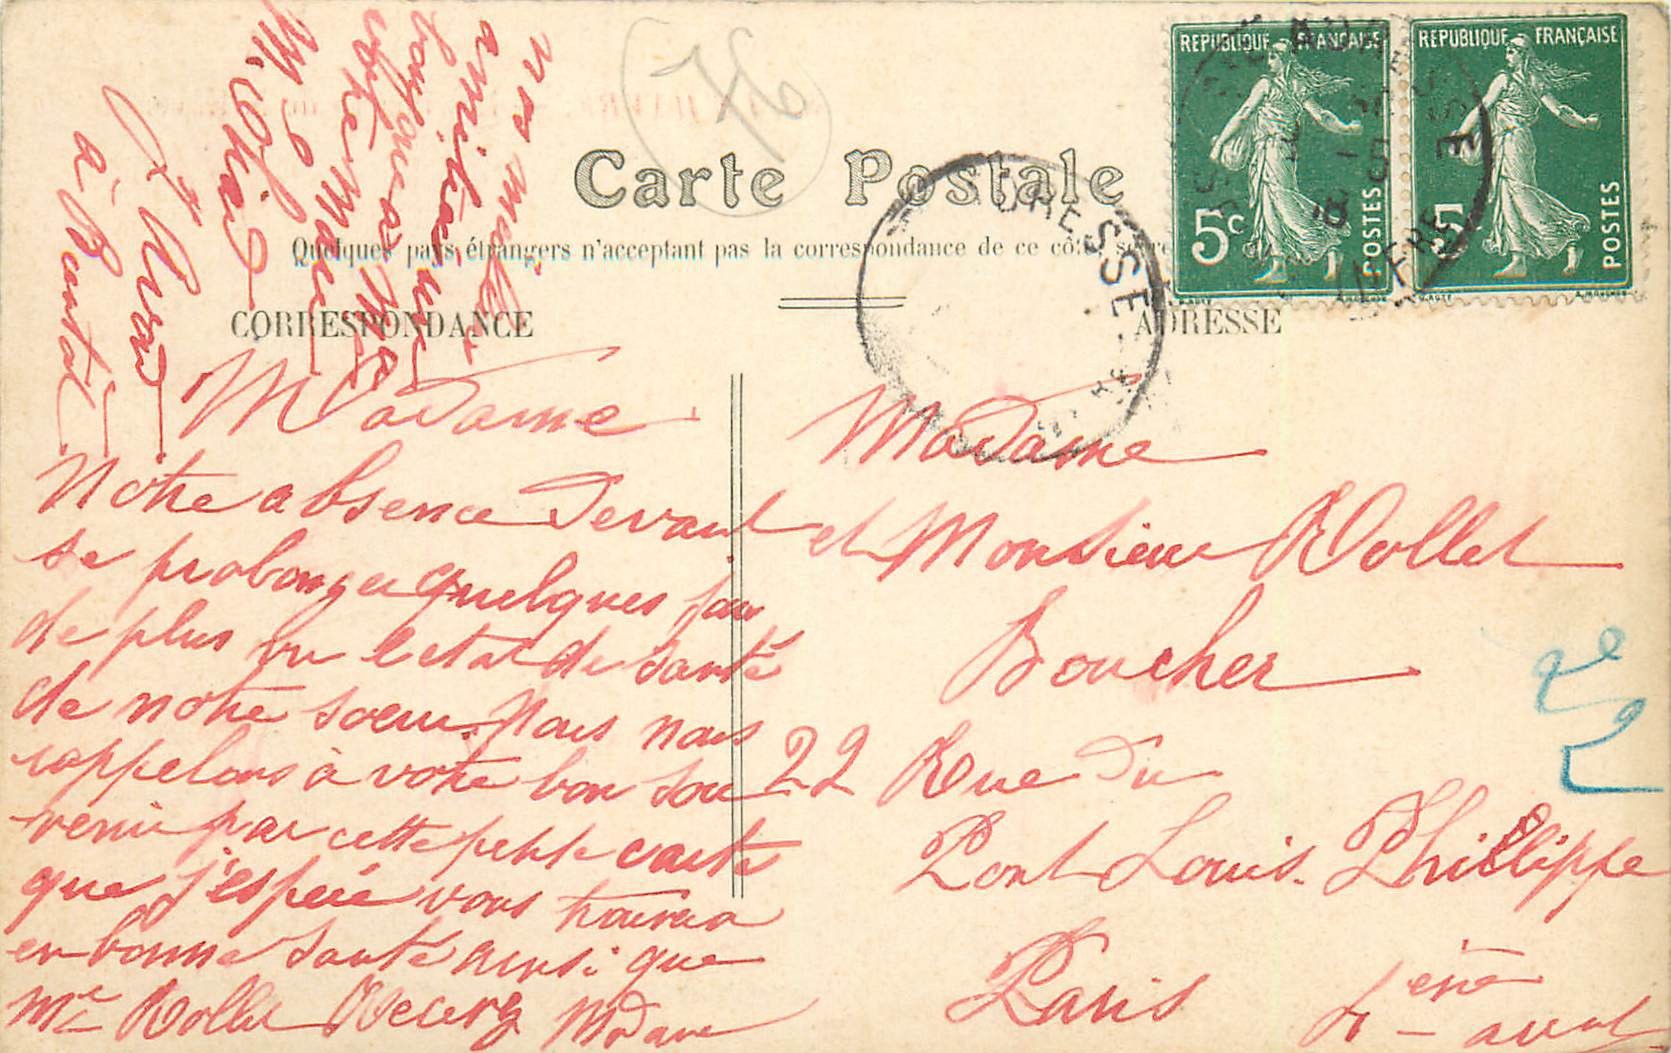 Carte Postale
Quelques pays étrangers n'acceptent pas la correspondance de ce côté
CORRESPONDANCE
ADRESSE
REPUBLIQUE FRANÇAISE
5c POSTES
REPUBLIQUE FRANÇAISE
5 POSTES
Madame
Notre absence devant
se prolonger quelques jour
de plus vu l'etat de santé
de notre soeur. Nous nous
rappelons à votre bon sou
venir par cette petite carte
que j'espére vous trouvera
en bonne santé ainsi que
Mr Rollet Recevez Madame
nos
amitiés
à
Madame
et Monsieur Rollet
Boucher
22 Rue du
Pont Louis-Phillippe
Paris
4 eme